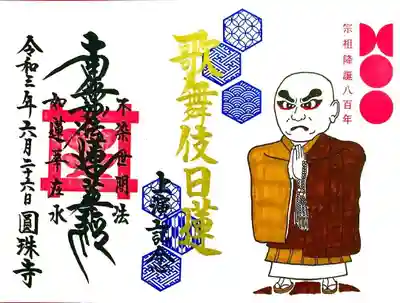 宗祖降誕八百年
歌舞伎日蓮
上演記念
不染世間法
南無妙法蓮華経
如蓮華在水
令和三年六月二十六日圓珠寺